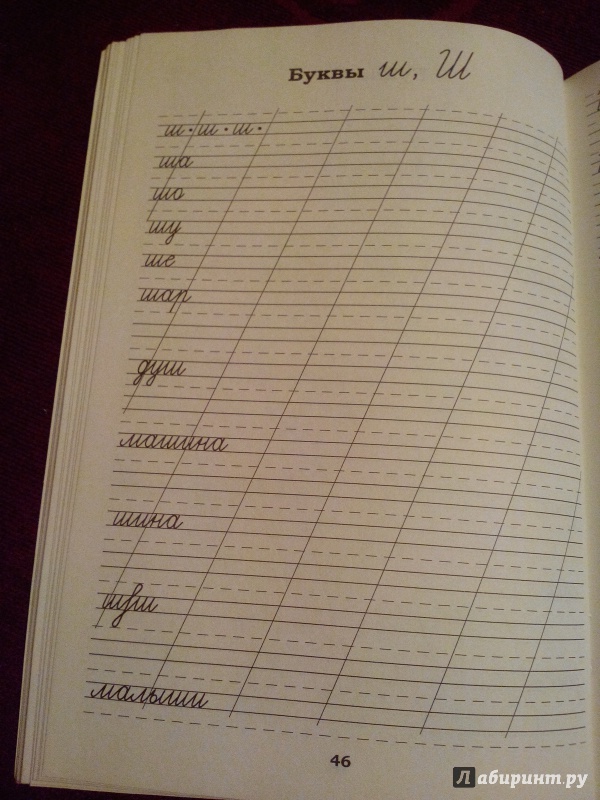 Буквы ш, Ш
ш · ш · ш ·
ша
шо
шу
ше
шар
душ
машина
шина
малыши
46
Лабиринт.ру